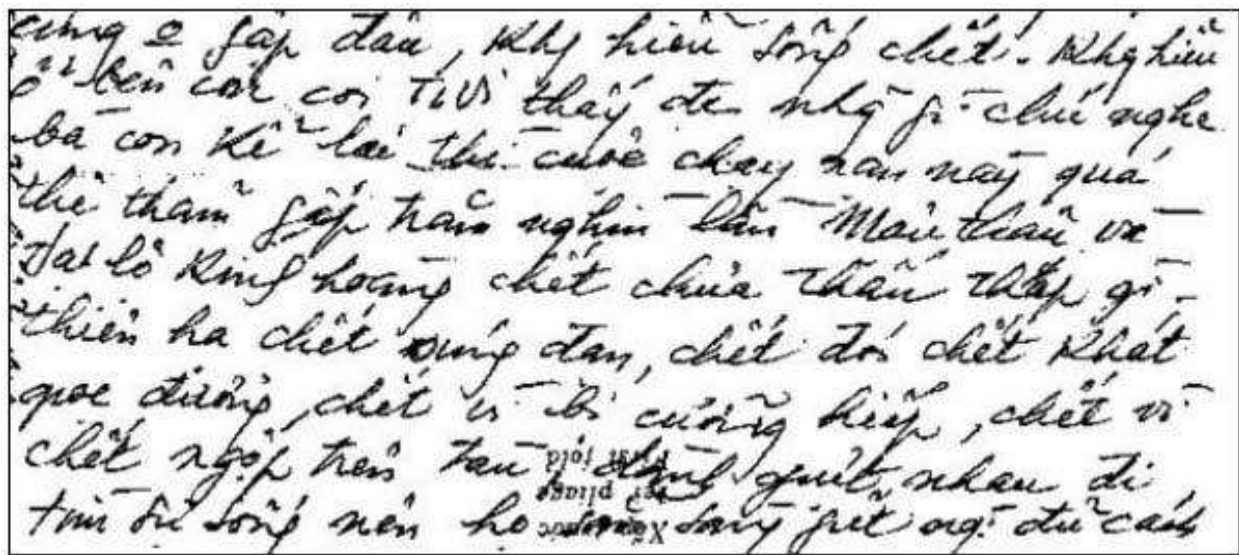 cũng o gặp đâu, Khg hiểu sống chết. Khg hiểu
ở bên coi TiVi thấy đc nhg gì chứ nghe
bà con Kể lại thì cuộc chạy nạn này quá
thê thảm gấp trăm nghìn lần Mậu thân và
Đại lộ Kinh hoàng chết chưa Thấm Tháp gì -
thiên hạ chết súng đạn, chết đói chết Khát
dọc đường, chết vì bị cưỡng hiếp, chết vì
chết ngộp trên tàu, nhau đi
tìm sự sống nên họ sẵn sàng giết ng. đủ cách